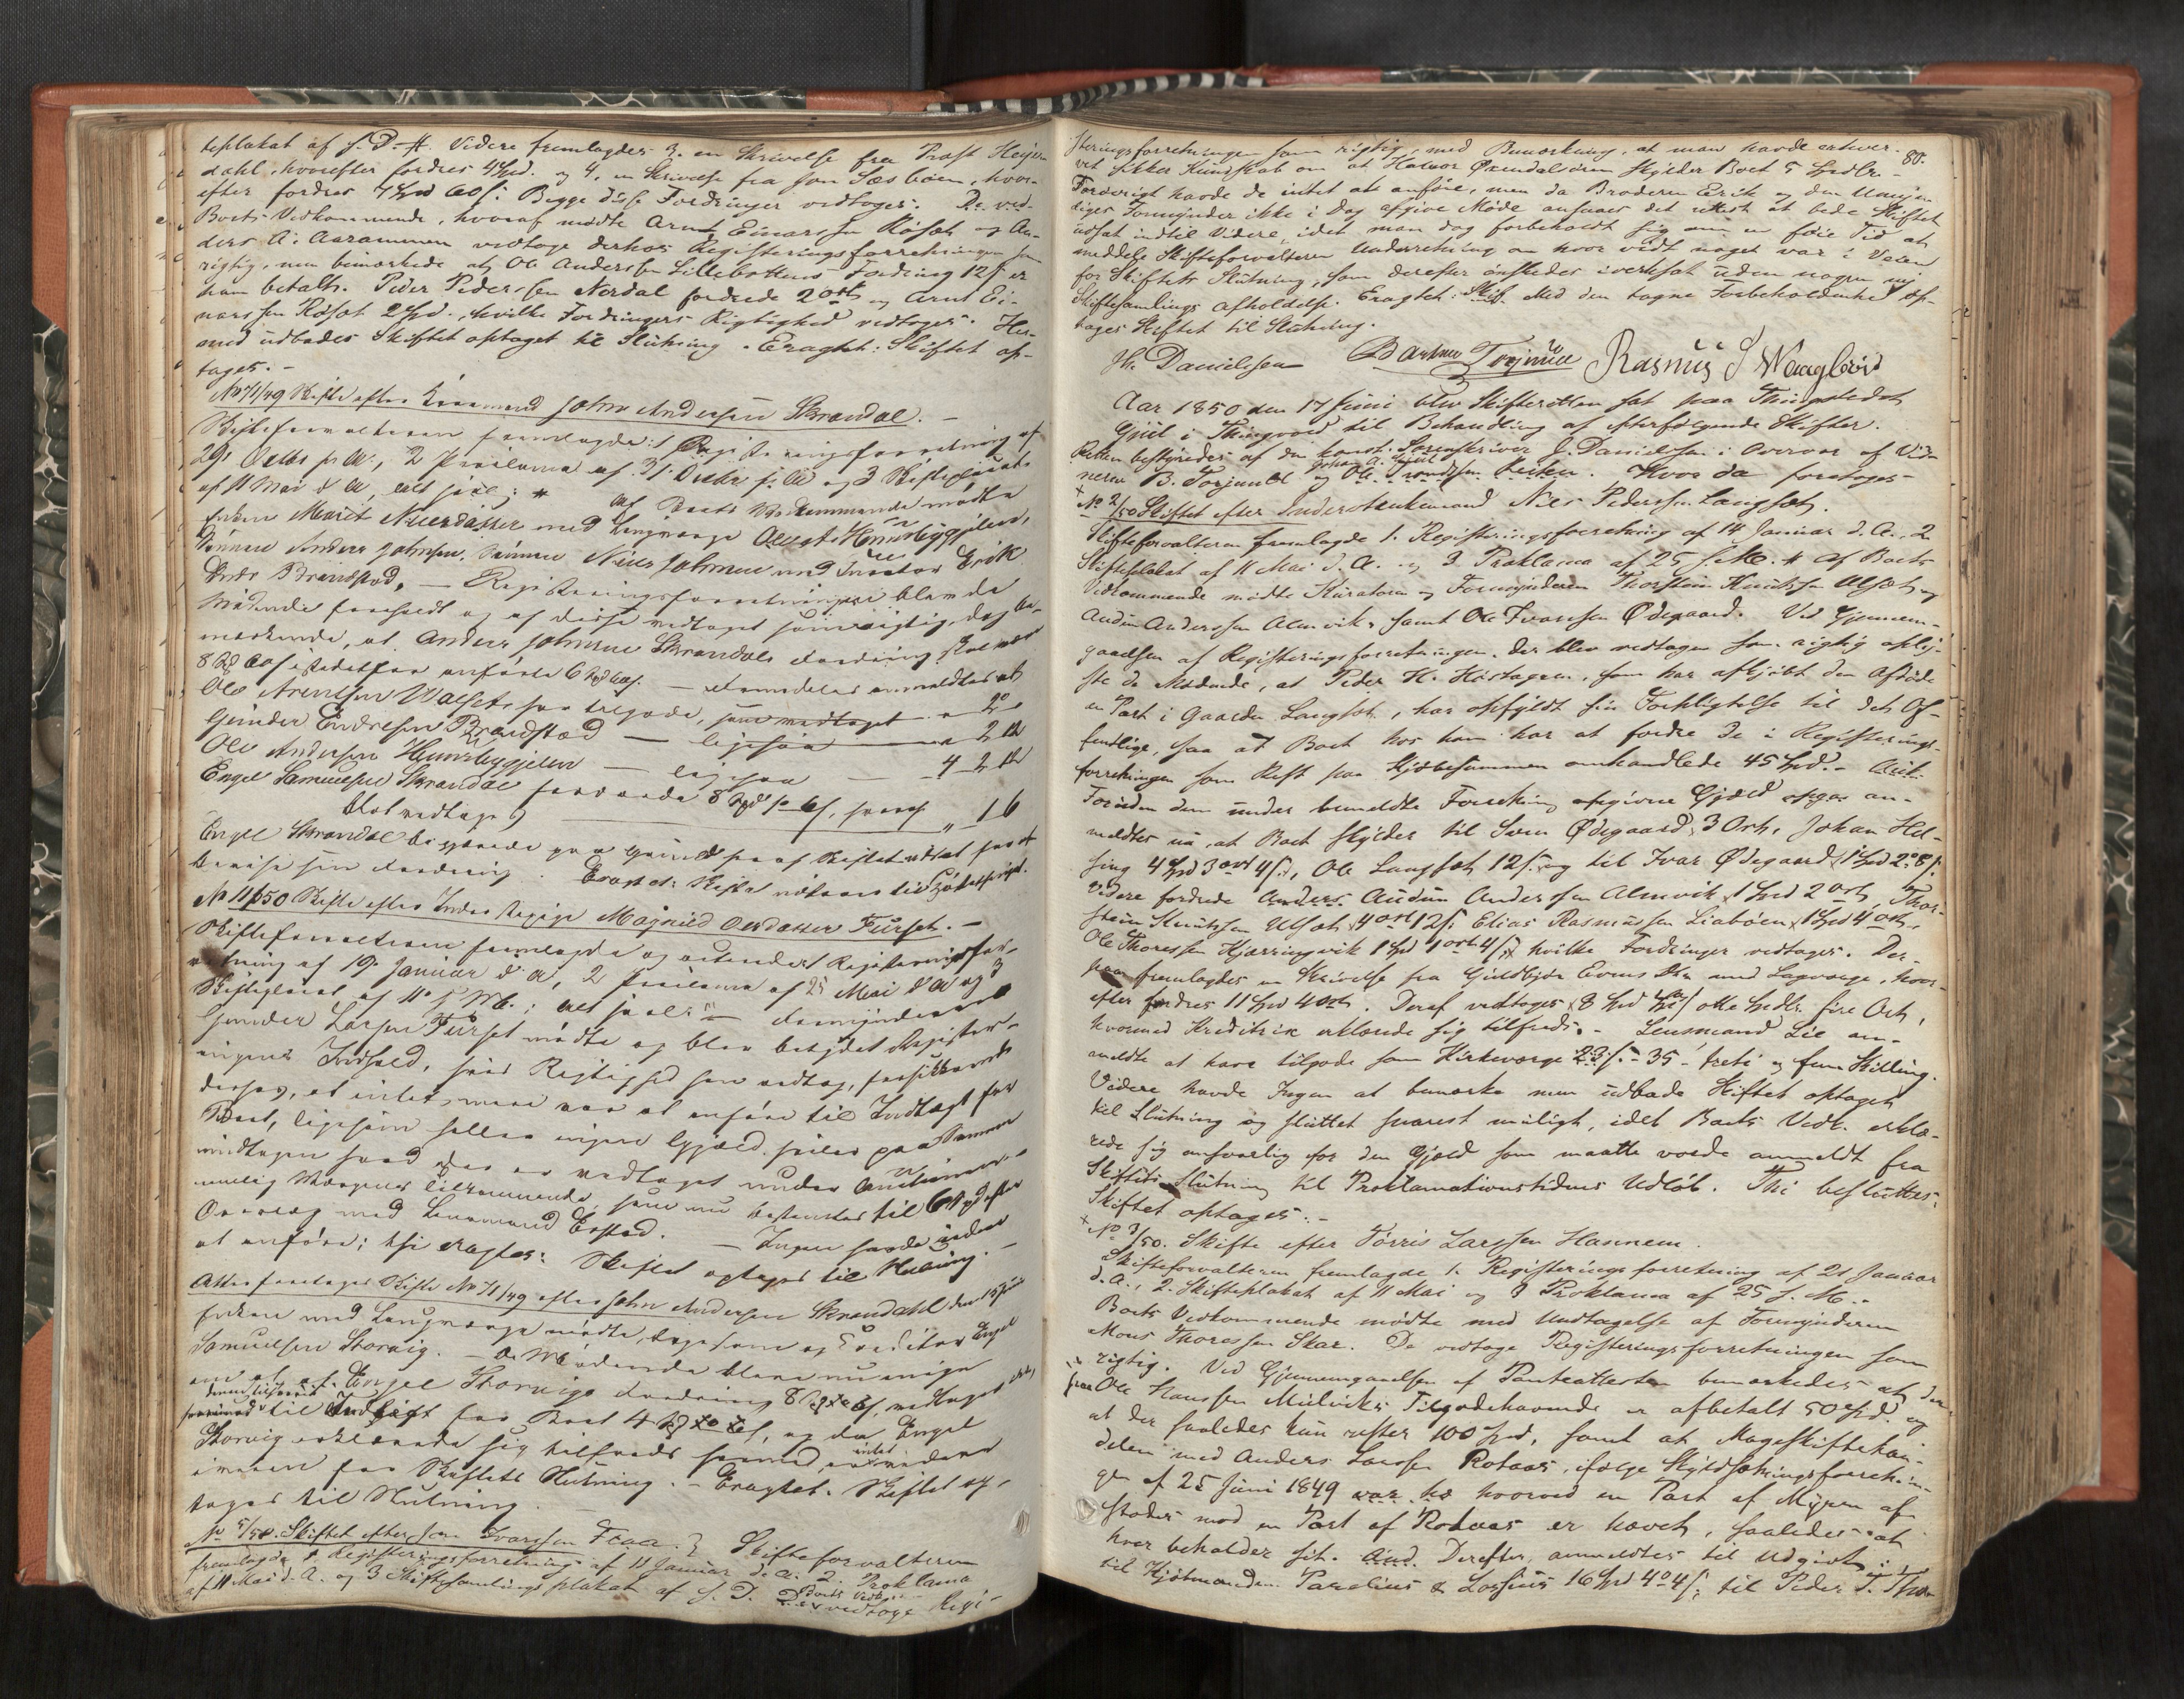 teplakat af s. D. # Videre fremlagdes 3. en Skrivelse fra Provst Heyer-
dahl, hvorefter fordres 4 Spd. og 4. en Skrivelse fra Jon Sæsbøen, hvor-
efter fordres 7 Spd 60 s. Begge disse Fordringer vedtoges. De ved-
Boets Vedkommende, hvoraf mødte Arnt Einarssen Røsæt og An-
ders A. Aarammen vedtoge derhos Registeringsforretningen som
rigtig, men bemærkede at Ole Anderssen Lillebottens Fordring 12 s. er
ham betalt. Peder Pederssen Nordal fordrede 2 ort og Arnt Ei-
narssen Røsæt 2 Spd., hvilke Fordringers Rigtighed vedtoges. Her-
med udbades Skiftet optaget til Slutning. Eragtet: Skiftet op-
tages.-
No 71/49 Skifte efter Huusmand John Andersen Strandal.-
Skifteforvalteren fremlagde: 1 Registeringsforretning af
29. Octbr f. A., 2 Proklama af 31. Decbr f. A. og 3 Skifteplacat
af 11 Mai d. A., Af Boets Vedkommende mødte
Enken Marit Nielsdatter med Laugværge Hunsbyggielen,
Sønnen Anders Johnsen, Sønnen Niels Johnsen med Curator Erik
Brandstad. - Registeringsforretningen blev de
Mødende foreholdt og af disse vedtaget som rigtig, dog be-
mærkende, at Anders Johnsen Strandals Fordring skal være
8 Spd 60 s istedetfor anførte 6 Spd 60 s. - Fremdeles anmeldtes at
Ole Arentsen Walset har tilgode, som vedtaget
Gunder Endresen Brandstad - ligesaa - 2 ort
Ole Andersen Hunsbyggielen - ligesaa - 4 - 2 ort
Engel Samuelsen Strandal fordrede 8 Spd 6 s, hvoraf
blot vedtages „ 16
Engel Strandal begjærede paa Grund heraf Skiftet udsat for at
bevise sin Fordring. Eragtet: Skiftet udsættes til
No 11/50 Skifte efter Magnild Olsdatter Furset.-
Skifteforvalteren fremlagde og Registeringsfor-
retning af 19. Januar d. A., 2 Proklama af 25 Mai d A og 3
Skifteplacat af 11. s. M.; Formynderen
Gunder Larsen Furset mødte og blev betydet Register-
ingens Indhold, hvis Rigtighed han vedtog, forsikkrende
derhos, at intet mere var at anføre til Indtægt for
Boet, ligesom heller ingen Gjæld hviler paa samme
undtagen hvad der er vedtaget under
Værgens Tilkommende, som nu bestemtes til 6 Spd efter
Overlæg med Lensmand Erstad. - Ingen havde videre
at anføre; thi eragtes: Skiftet optages til Slutning.-
Atter foretoges Skifte No 71/49 efter John Andersen Strandahl den 15 Juni
Enken med Laugværge mødte, ligesom og Creditor Engel
Samuelsen Storvig. - De Mødende bleve nu enige
om at af Engel Storvigs Fordring 8 Spd 6 s, vedtages
til Udgift for Boet 4 Spd, og da Engel
Storvig erklærede sig tilfreds hermed, intet videre
i veien for Skiftets Slutning. - Eragtet. Skiftet op-
tages til Slutning.
No 5/50. Skiftet efter Jon Ivarssen Fraa. Skifteforvalteren
fremlagde 1. Registeringsforretning af 11 Januar d. A. 2. Proklama
af 11 Mai d. A. og 3 Skiftesamlingsplakat af s. D. Boets Vedk. vedtoge Regi-
80.
steringsforretningen som rigtig, med Bemærkning, at man havde erhver-
vet sikker Kundskab om at Halvor Øxendalsøren skylder Boet 5 Spdlr.-
Forøvrigt havde de intet at anføre, men da Broderen Erik og den Umyn-
diges Formynder ikke i Dag afgive Møde ansaaes det rettest at bede Skiftet
udsat indtil Videre, idet man dog forbeholdt sig om en føie Tid at
meddele Skifteforvalteren Underretning om hvor vidt noget var i Veien
for Skiftets Slutning, som derefter ønskedes iverksat uden nogen ny
Skiftesamlings Afholdelse. Eragtet: Skif. Med den tagne Forbeholdenhed op-
tages Skiftet til Slutning.
H. Danielssen B Torjuul Rasmus J Waagbøid
Aar 1850 den 17 Juni blev Skifteretten sat paa Thingstedet
Gjul i Thingvold til Behandling af efterfølgende Skifter.
Retten bestyredes af den konst. Sorenskriver J. Danielssen i Overvær af Vid-
nerne B. Torjuul og Johan A. Gjul Ole Trondssen Hvor da foretoges
No 2/50 Skiftet efter Inderstenkemand Niels Pederssen Langsæt.
Skifteforvalteren fremlagde 1. Registeringsforretning af 14 Januar d. A., 2
Skifteplakat af 11 Mai d. A. og 3 Proklama af 25 s. M. # Af Boets
Vedkommende mødte Kuratoren og Formynderen Thorstein Knutssen Ulsæt og
Audun Anderssen Almvik, samt Ole Ivarssen Ødegaard. Ved Gjennem-
gaaelsen af Registeringsforretningen, der blev vedtagen som rigtig oply-
ste de Mødende, at Peder H. Høstagren, som har afkjøbt den Afdøde
en Part i Gaarden Langsæt, har opfyldt sin Forpligtelse til det Of-
fentlige, saa at Boet hos ham har at fordre de i Registerings-
forretningen som Rest paa Kjøbesummen omhandlede 45 Spd.-
Foruden den under bemeldte Forretning opgivne Gjæld opgav an-
meldtes nu, at Boet skylder til Sven Ødegaard 3 Ort, Johan Hel-
sing 4 Spd 3 ort 4 s., Ole Langsæt 12 s. og til Ivar Ødegaard 1 Spd 2 o 8 s.
Videre fordrede Anders Audun Anderssen Almvik 1 Spd 2 ort, Thor-
stein Knutssen Ulsæt 4 ort 12 s. Elias Rasmussen Liabøen 1 Spd 4 ort,
Ole Thoressen Kjørringvik 1 Spd 1 ort 4 s., hvilke Fordringer vedtoges. Der-
paa fremlagdes en Skrivelse fra Guldbjør Evens Dtr med Lagværge, hvor-
efter fordres 11 Spd 4 ort. Deraf vedtoges 8 Spd otte Spdlr. fire Ort,
hvormed Kreditrix erklærede sig tilfreds.- Lensmand Lie an-
meldte at have tilgode som Kirkeværge 23 s. - 35 - treti og fem Skilling.
Videre havde Ingen at bemærke men udbade Skiftet optaget
til Slutning og sluttet snarest muligt, idet Boets Vedk. erklæ-
rede sig ansvarlig for den Gjæld som maatte vorde anmeldt fra
Skiftets Slutning til Proklamationstidens Udløb. Thi besluttes:
Skiftet optages.-
No 3/50. Skifte efter Tørris Larssen Hannem.
Skifteforvalteren fremlagde 1. Registeringsforretning af 21 Januar
d. A., 2. Skifteplakat af 11 Mai og 3 Proklama af 25 s. M.-
Boets Vedkommende mødte med Undtagelse af Formynderen
Mons Thoressen Skar. De vedtoge Registeringsforretningen som
rigtig. Ved Gjennemgaaelsen af Panteattesten bemærkedes at der
paa Ole Hanssen Mulviks Tilgodehavende er afbetalt 50 Spd. og
at der saaledes kun rester 100 Spd, samt at Mageskiftehan-
delen med Anders Larssen Rotaas, ifølge Skyldsætningsforretnin-
gen af 25 Juni 1849 hvorved en Part af Myren af-
stodes mod en Part af Rotaas er hævet, saaledes at
hver beholder sit. And. Derefter anmeldtes til Udgivt
til Kjøbmanden Parelius & Lossius 16 Spd 4 o 4 s; til Peder T. Thor-